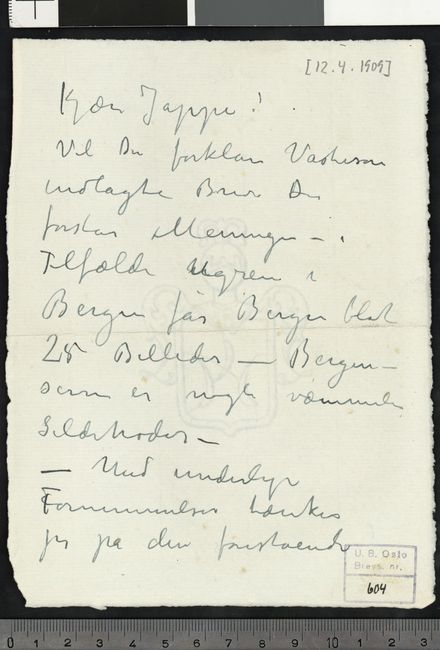 [12.4.1909]
Kjære Jappe!
Vil Du forklare
indlagte Brev Du
forstår Meningen – i
Tilfælde i
Bergen får Bergen blot
25 Billeder – Bergen-
serne er nogle væmmelige
Sildehoder –
– Med underlige
Fornemmelser tænker
jeg på den forestående
U. B. Oslo
Brevs. nr.
604
0 1 2 3 4 5 6 7 8 9 10 11 12 13 14